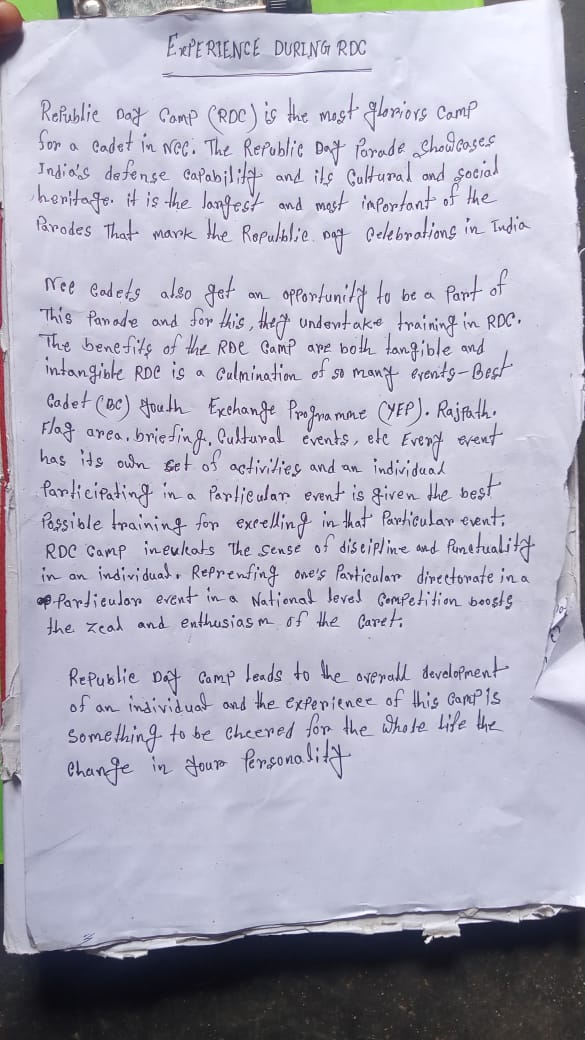 EXPERIENCE DURING RDC
Republic Day Camp (RDC) is the most gloriors Camp
for a cadet in NCC. The Republic Day Parade Showcases
India's defense capability and its Cultural and social
heritage. it is the largest and most important of the
Parodes That mark the Repulblic Day Celebrations in India
Ncc Cadets also get an opportunity to be a Part of
This Parade and for this, they undertake training in RDC.
The benefits of the RDC Camp are both tangible and
intangible RDC is a Culmination of so many events-Best
Cadet (BC) Youth Exchange Programme (YEP). Rajpath.
Flag area, briefing, Cultural events, etc Every event
has its own set of activities and an individual
Participating in a Particular event is given the best
Possible training for excelling in that Particular event.
RDC Camp inculcats The Sense of discipline and Punctuality
in an individual. Reprenting one's Particular directorate in a
Particular event in a National level Competition boosts
the zeal and enthusiasm of the Caret.
Republic Day Camp leads to the overall development
of an individual and the experience of this Camp is
Something to be cheered for the Whole Life the
Change in your Personality